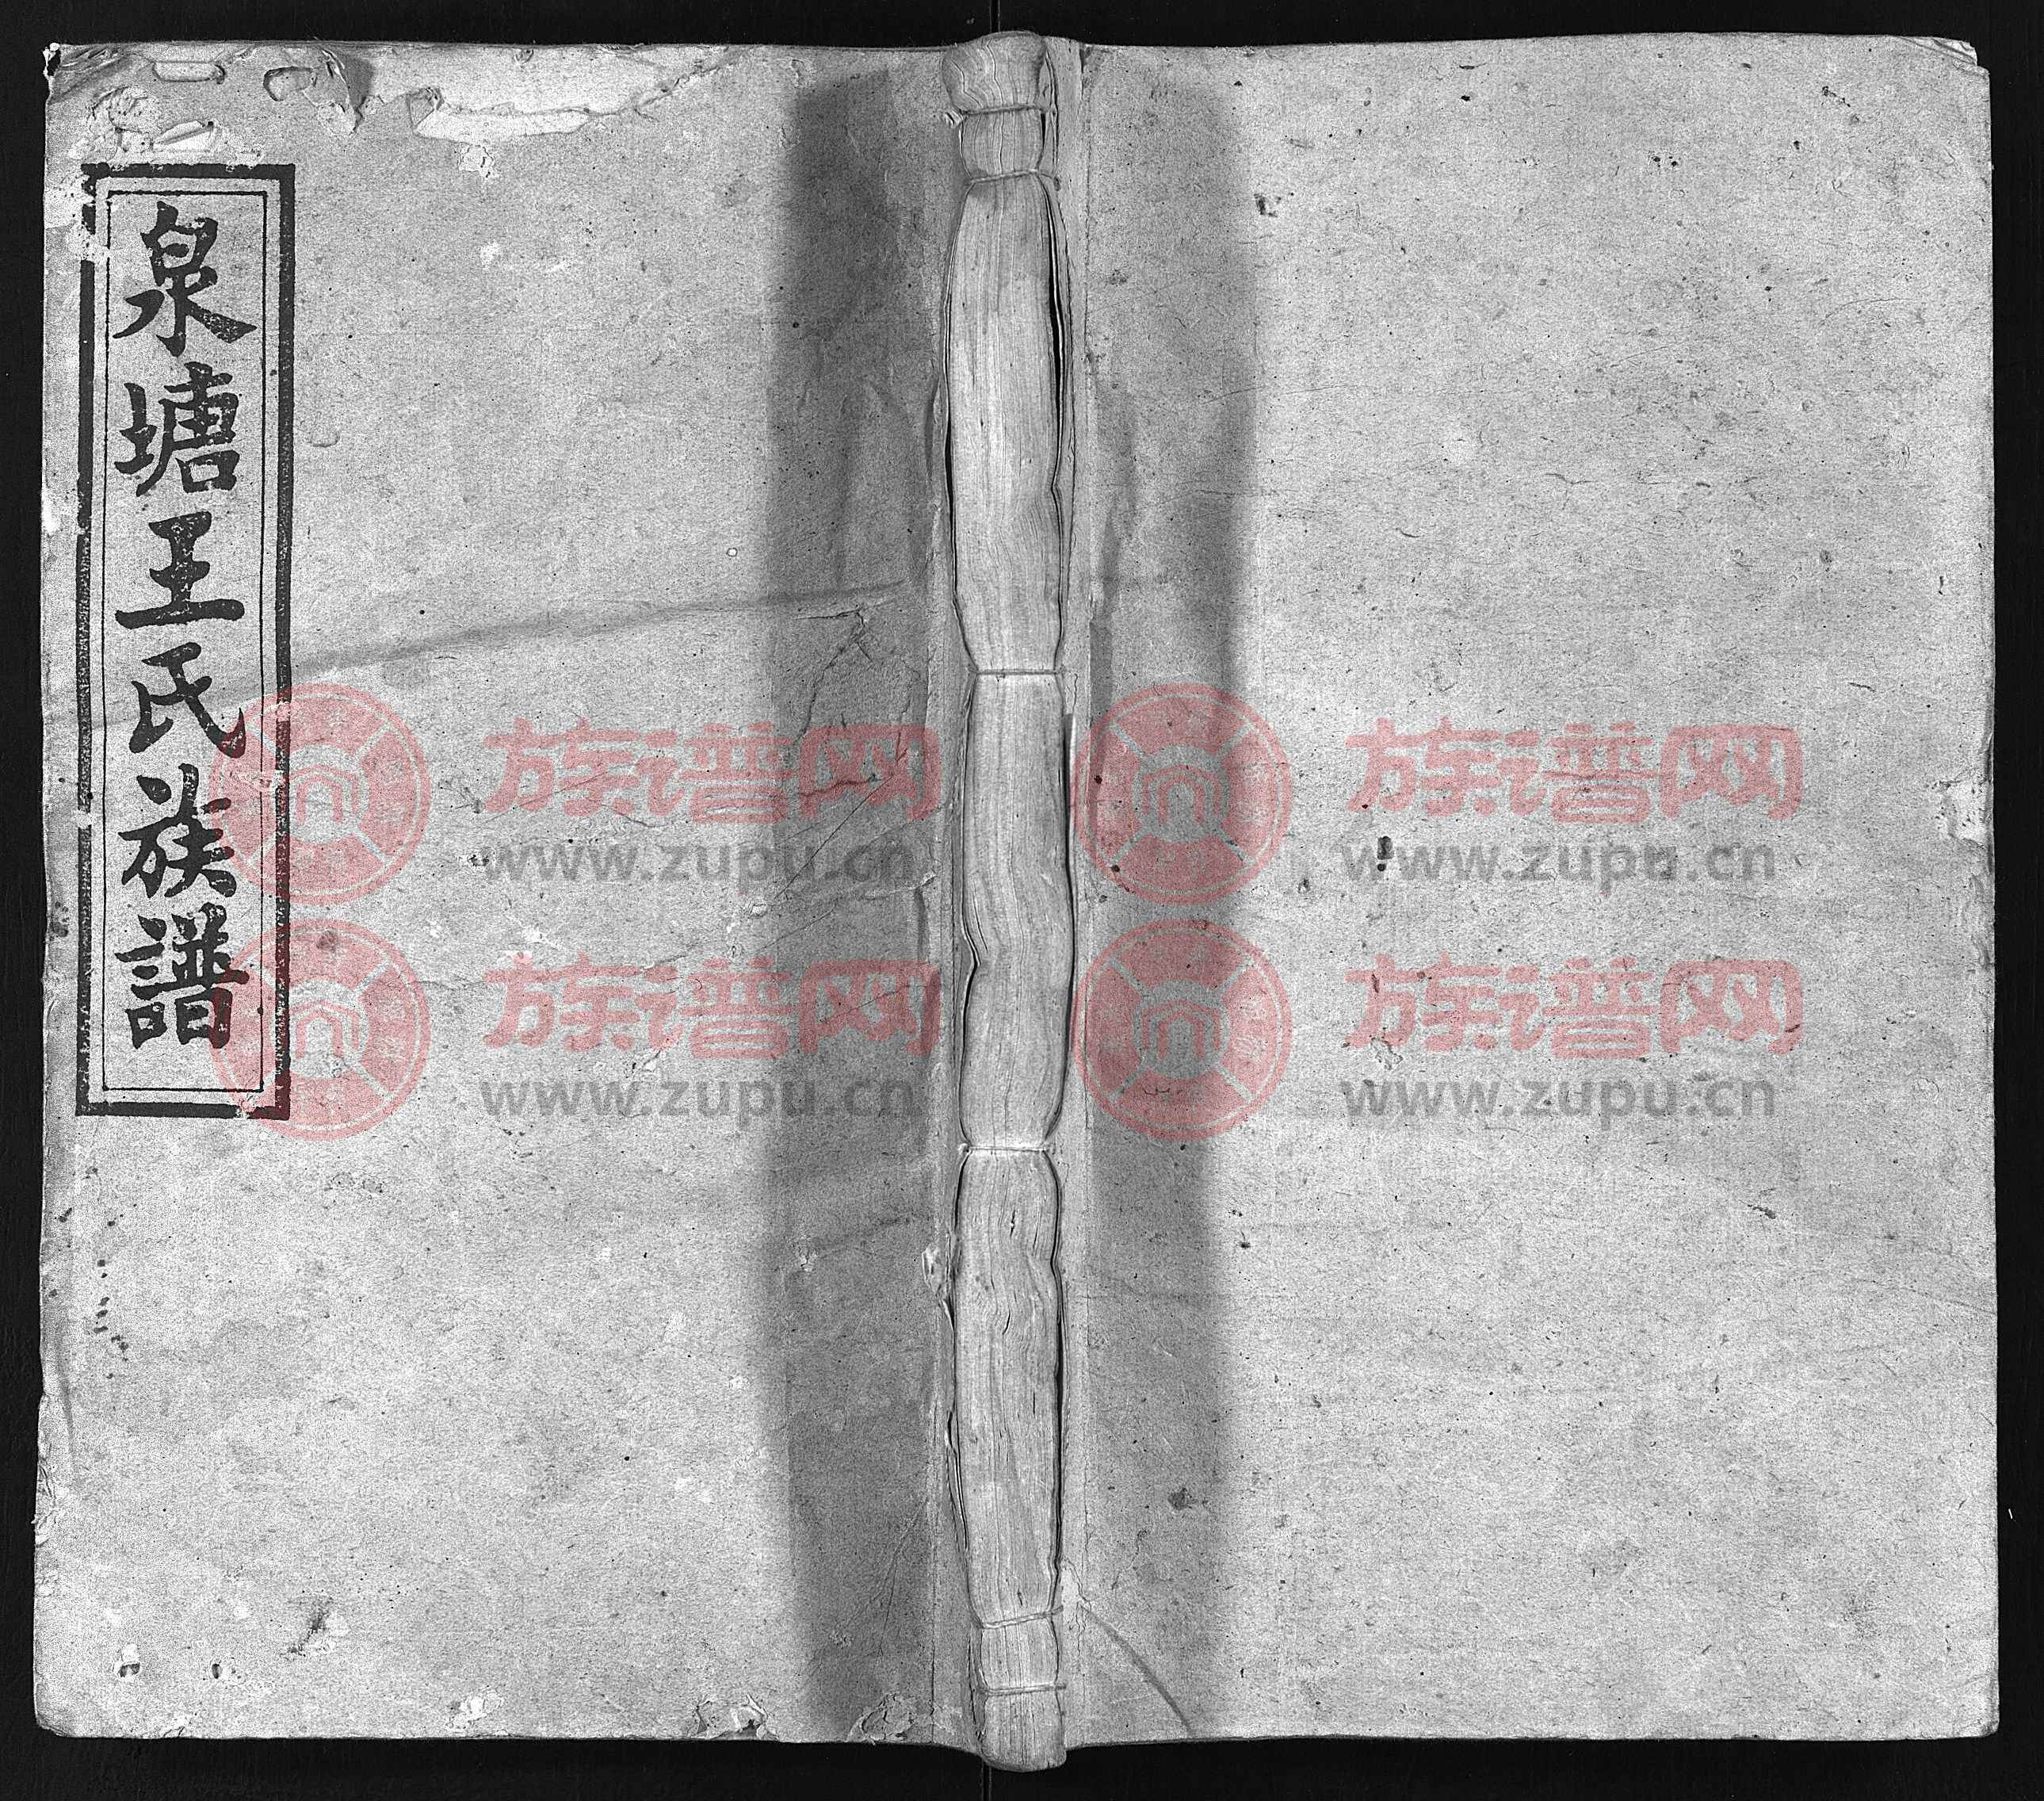 泉塘王氏族譜
族谱网 族谱网
www.zupu.cn www.zupu.cn
族谱网 族谱网
www.zupu.cn www.zupu.cn